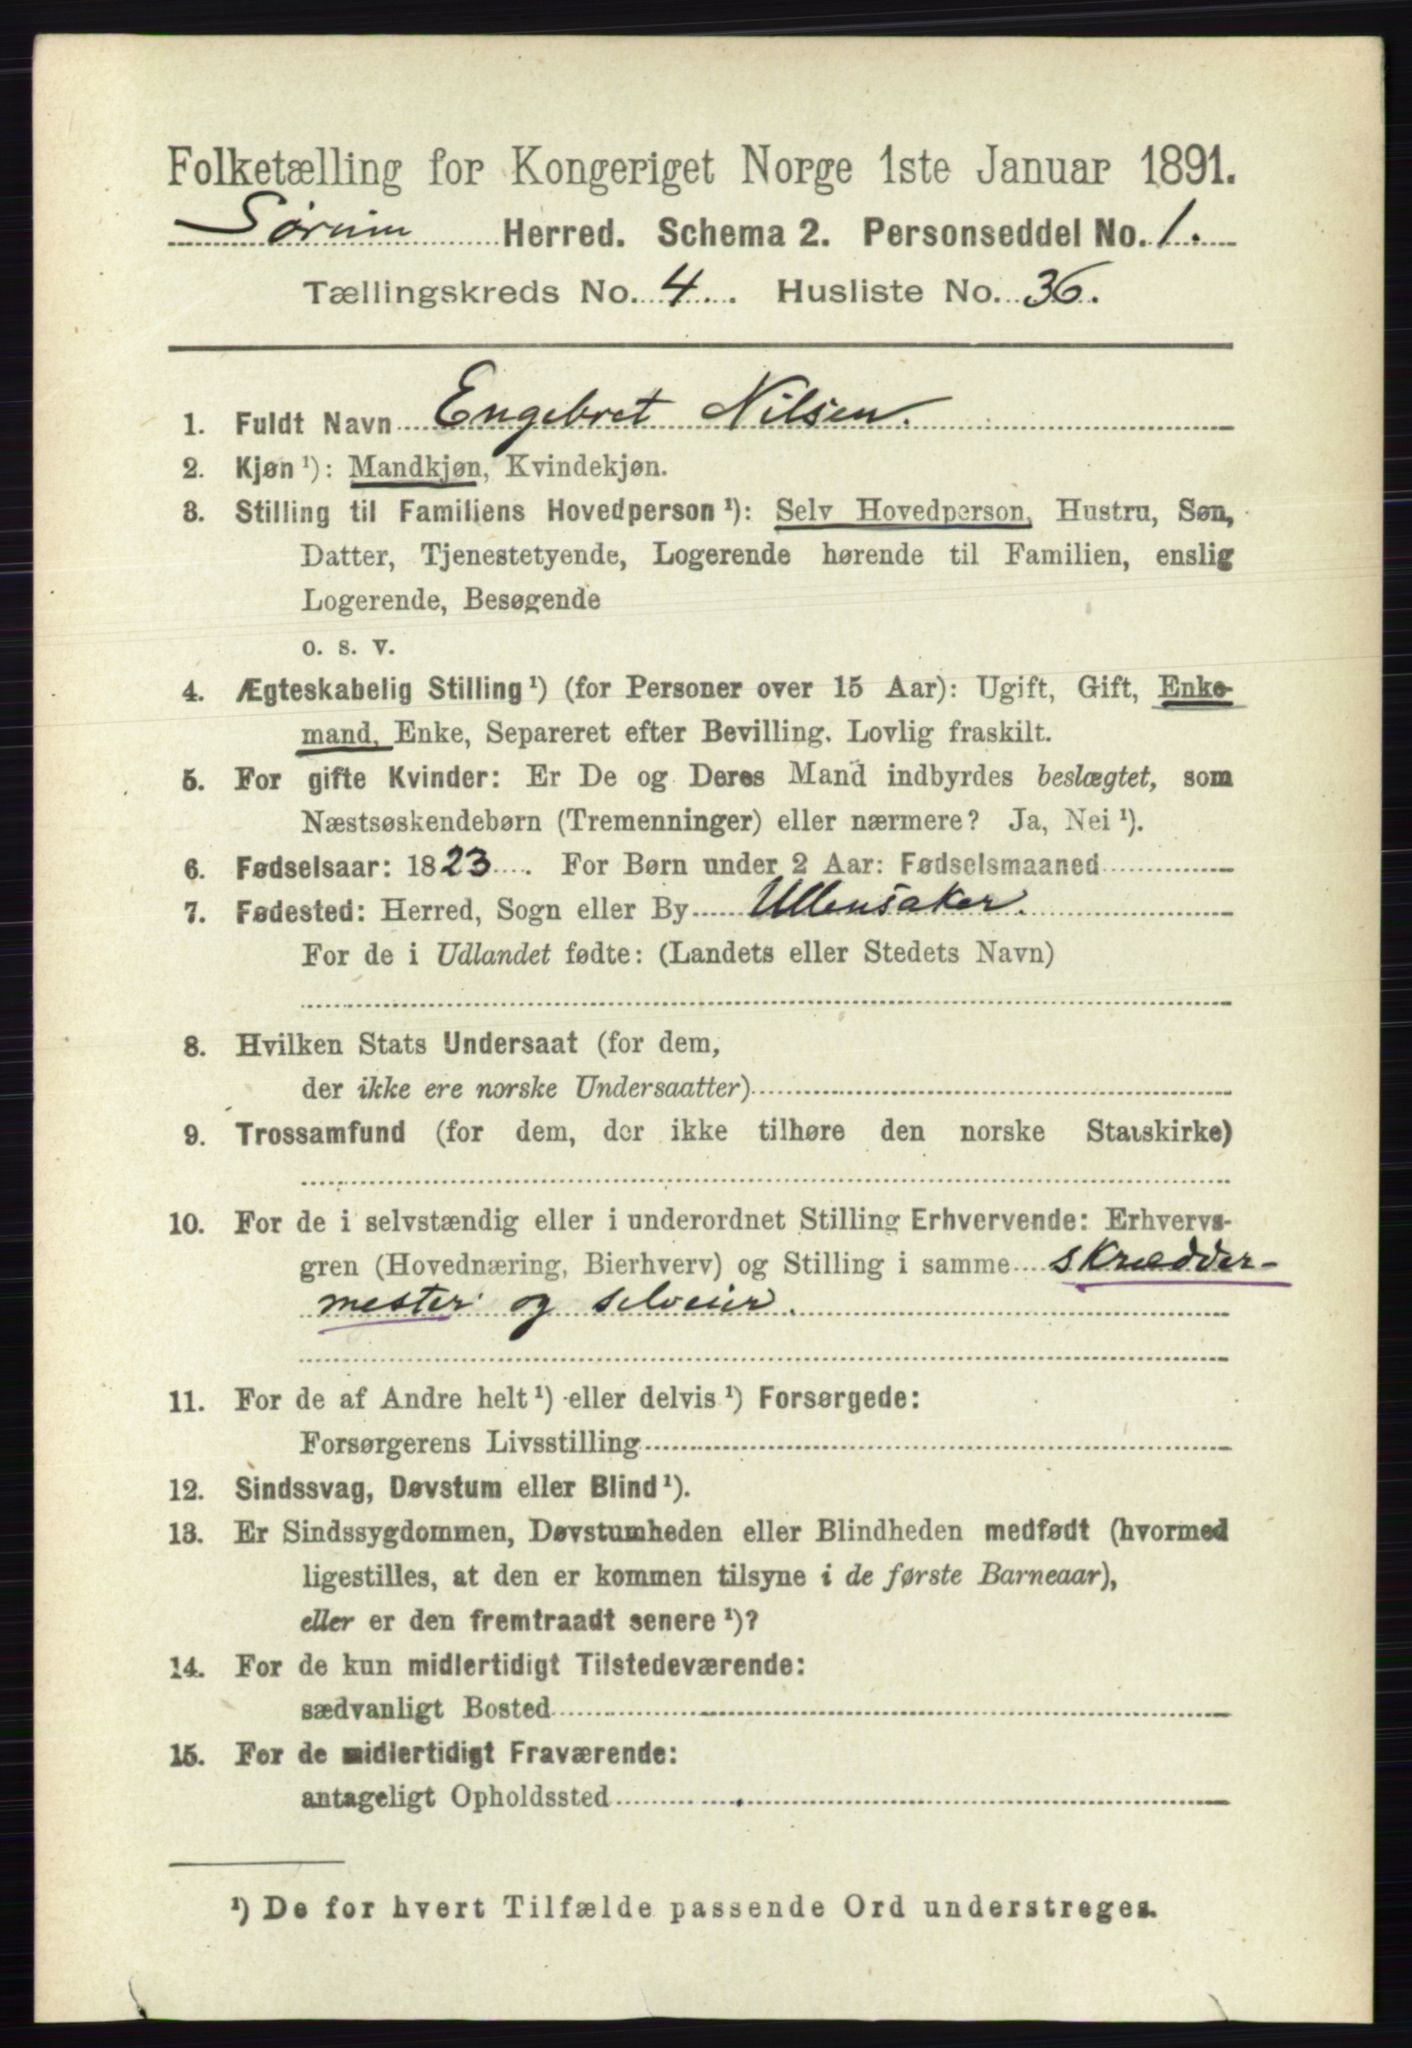 Folketælling for Kongeriget Norge 1ste Januar 1891.
Sørum Herred. Schema 2. Personseddel No. 1.
Tællingskreds No. 4. Husliste No. 36.
1. Fuldt Navn Engebret Nilsen.
2. Kjøn ¹): Mandkjøn, Kvindekjøn.
3. Stilling til Familiens Hovedperson ¹): Selv Hovedperson, Hustru, Søn,
Datter, Tjenestetyende, Logerende hørende til Familien, enslig
Logerende, Besøgende
o. s. v.
4. Ægteskabelig Stilling ¹) (for Personer over 15 Aar): Ugift, Gift, Enke-
mand, Enke, Separeret efter Bevilling. Lovlig fraskilt.
5. For gifte Kvinder: Er De og Deres Mand indbyrdes beslægtet, som
Næstsøskendebørn (Tremenninger) eller nærmere? Ja, Nei ¹).
6. Fødselsaar: 1823. For Børn under 2 Aar: Fødselsmaaned
7. Fødested: Herred, Sogn eller By Ullensaker.
For de i Udlandet fødte: (Landets eller Stedets Navn)
8. Hvilken Stats Undersaat (for dem,
der ikke ere norske Undersaatter)
9. Trossamfund (for dem, der ikke tilhøre den norske Statskirke)
10. For de i selvstændig eller i underordnet Stilling Erhvervende: Erhvervs-
gren (Hovednæring, Bierhverv) og Stilling i samme skrædder-
mester og selveier.
11. For de af Andre helt ¹) eller delvis ¹) Forsørgede:
Forsørgerens Livsstilling
12. Sindssvag, Døvstum eller Blind ¹).
13. Er Sindssygdommen, Døvstumheden eller Blindheden medfødt (hvormed
ligestilles, at den er kommen tilsyne i de første Barneaar),
eller er den fremtraadt senere ¹)?
14. For de kun midlertidigt Tilstedeværende:
sædvanligt Bosted
15. For de midlertidigt Fraværende:
antageligt Opholdssted
¹) De for hvert Tilfælde passende Ord understreges.